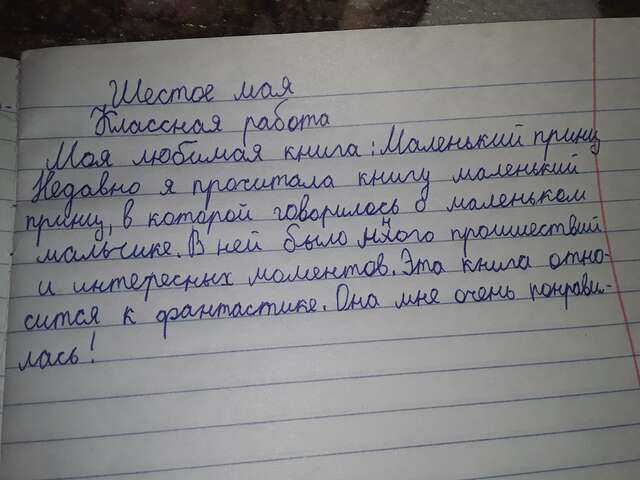 Шестое мая
Классная работа
Моя любимая книга: Маленький принц
Недавно я прочитала книгу маленький
принц, в которой говорилось о маленьком
мальчике. В ней было много проишествий
и интересных моментов. Эта книга отно-
сится к фантастике. Она мне очень понрави-
лась!